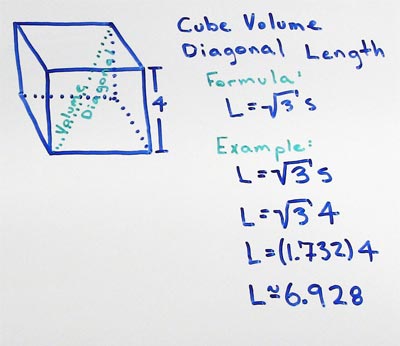 Cube Volume
Diagonal Length
Formula:
L=√3 s
Volume
Diagonal
4
Example:
L=√3 s
L=√3 4
L=(1.732)4
L≈6.928